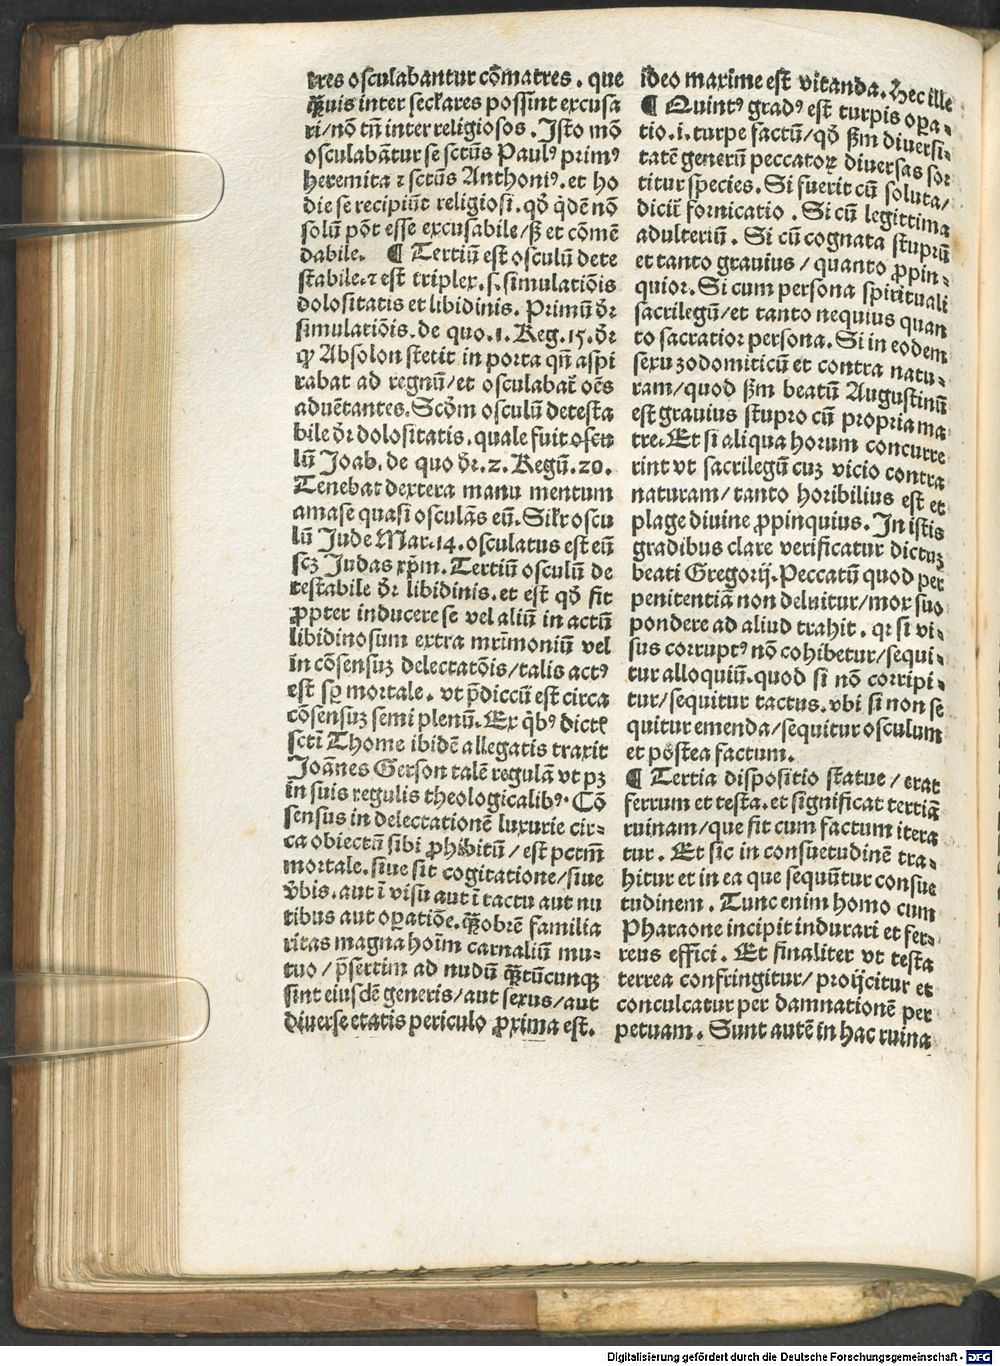 tres osculabantur cōmatres. que
q̄uis inter seclares possint excusa
ri/nō tn̄ inter religiosos. Isto mō
osculabātur se sctūs Paulꝰ primꝰ
heremita ⁊ sctūs Anthoniꝰ. et ho
die se recipiūt religiosi. qđ q̇dē nō
solū pōt esse excusabile/sꝫ et cōmē
dabile. ¶ Tertiū est osculū dete
stabile.⁊ est triplex.s.simulatiōis
dolositatis et libidinis. Primū dr̄
simulatiōis. de quo.1. Reg.15. dr̄
ꝙ Absolon stetit in porta qn̄ aspi
rabat ad regnū/et osculabat̄ oēs
aduētantes. Scōm osculū detesta
bile dr̄ dolositatis. quale fuit oscu
lū Joab. de quo dr̄.2. Regū.20.
Tenebat dextera manu mentum
amase quasi osculās eū. Silr̄ oscu
lū Jude Mar.14. osculatus est eū
scꝫ Judas xp̄m. Tertiū osculū de
testabile dr̄ libidinis. et est qđ fit
ꝓpter inducere se vel aliū in actū
libidinosum extra mr̄imoniū vel
in cōsensuꝫ delectatōis/talis actꝰ
est sꝑ mortale. vt p̄diccū est circa
cōsensuꝫ semi plenū. Ex q̇bꝰ dictꝭ
scti Thome ibidē allegatis traxit
Joānes Gerson talē regulā vt pꝫ
in suis regulis theologicalibꝰ. Cō
sensus in delectationē luxurie cir-
ca obiectū sibi ꝓhibitū/est pctm̄
mortale. siue sit cogitatione/siue
v̄bis. aut ī visu aut ī tactu aut nu
tibus aut oꝑatiōe. q̄obrē familia
ritas magna hoīm carnaliū mu-
tuo/p̄sertim ad nudū q̄tūcunqꝫ
sint eiusdē generis/aut sexus/aut
diuerse etatis periculo ꝓxima est.
ideo maxime est vitanda. Hec ille
¶ Quintꝰ gradꝰ est turpis oꝑa-
tio.i.turpe factū/qđ ẜm diuersi-
tatē generū peccatoꝝ diuersas sor
titur species. Si fuerit cū soluta/
dicit̄ fornicatio. Si cū legittima
adulteriū. Si cū cognata stuprū
et tanto grauius/quanto ꝓpin-
quior. Si cum persona spirituali
sacrilegū/et tanto nequius quan
to sacratior persona. Si in eodem
sexu zodomiticū et contra natu-
ram/quod ẜm beatū Augustinū
est grauius stupro cū propria ma
tre. Et si aliqua horum concurre
rint vt sacrilegū cuꝫ vicio contra
naturam/tanto horibilius est et
plage diuine ꝓpinquius. In istis
gradibus clare verificatur dictuꝫ
beati Gregorij. Peccatū quod per
penitentiā non deluitur/mox suo
pondere ad aliud trahit. qꝛ si vi-
sus corruptꝰ nō cohibetur/sequi-
tur alloquiū. quod si nō corripi-
tur/sequitur tactus. vbi si non se
quitur emenda/sequitur osculum
et pōstea factum.
¶ Tertia dispositio statue/erat
ferrum et testa. et significat tertiā
ruinam/que fit cum factum itera
tur. Et sic in consuetudinē tra-
hitur et in ea que sequūtur consue
tudinem. Tunc enim homo cum
Pharaone incipit indurari et fer-
reus effici. Et finaliter vt testa
terrea confringitur/proijcitur et
conculcatur per damnationē per
petuam. Sunt autē in hac ruina
Digitalisierung gefördert durch die Deutsche Forschungsgemeinschaft - DFG